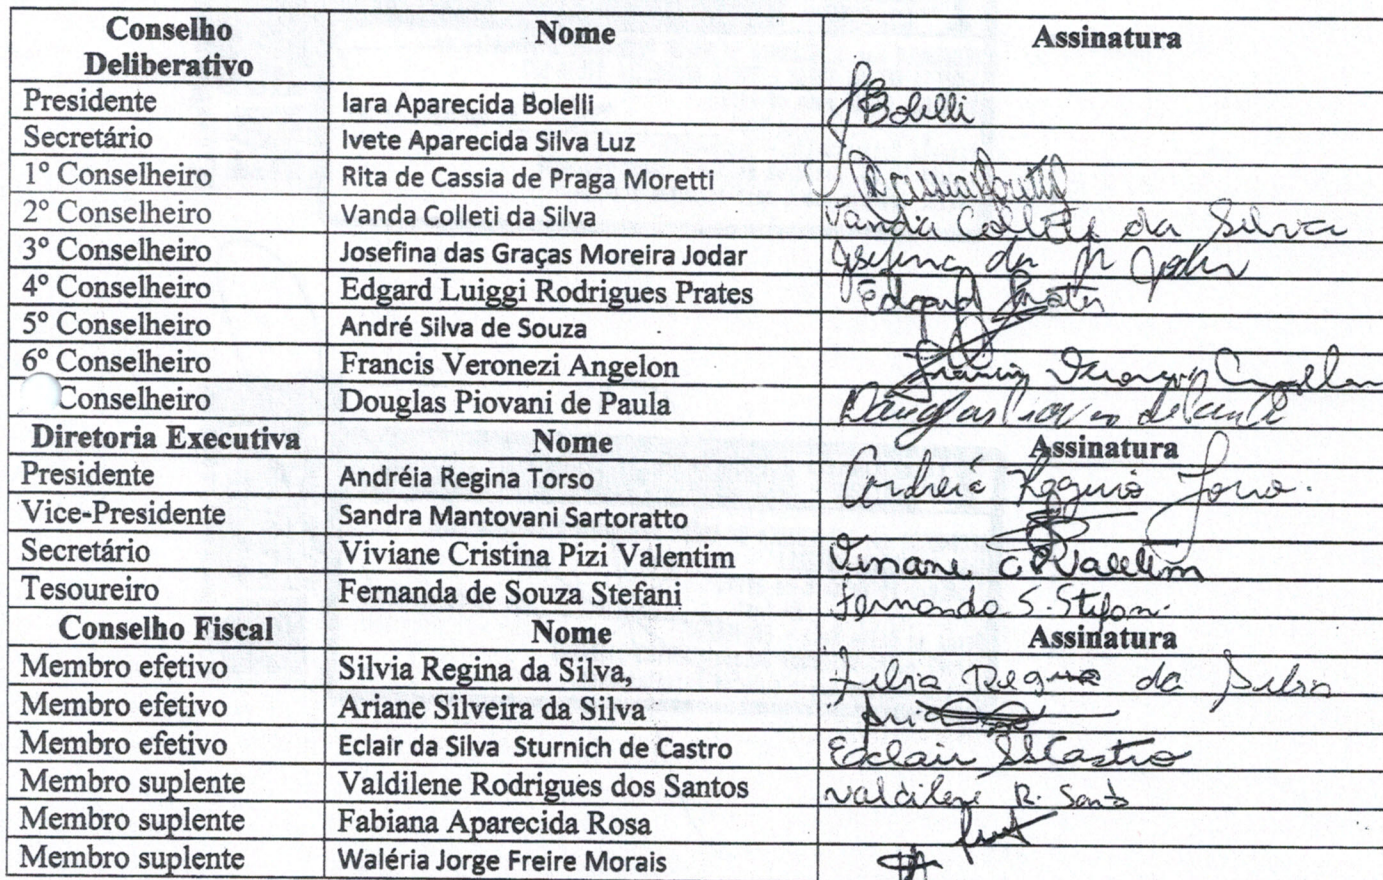 Conselho Deliberativo Nome Assinatura
Presidente Iara Aparecida Bolelli Bolelli
Secretário Ivete Aparecida Silva Luz
1º Conselheiro Rita de Cassia de Praga Moretti
2º Conselheiro Vanda Colleti da Silva Vanda Colleti da Silva
3º Conselheiro Josefina das Graças Moreira Jodar Josefina das M Jodar
4º Conselheiro Edgard Luiggi Rodrigues Prates Edgard Prates
5º Conselheiro André Silva de Souza
6º Conselheiro Francis Veronezi Angelon Francis Veronezi Angelon
Conselheiro Douglas Piovani de Paula Douglas Piovani de Paula
Diretoria Executiva Nome Assinatura
Presidente Andréia Regina Torso Andréia Regina Torso.
Vice-Presidente Sandra Mantovani Sartoratto
Secretário Viviane Cristina Pizi Valentim Viviane C P Valentim
Tesoureiro Fernanda de Souza Stefani Fernanda S. Stefani
Conselho Fiscal Nome Assinatura
Membro efetivo Silvia Regina da Silva, Silvia Regina da Silva
Membro efetivo Ariane Silveira da Silva
Membro efetivo Eclair da Silva Sturnich de Castro Eclair SSCastro
Membro suplente Valdilene Rodrigues dos Santos Valdilene R. Santos
Membro suplente Fabiana Aparecida Rosa
Membro suplente Waléria Jorge Freire Morais